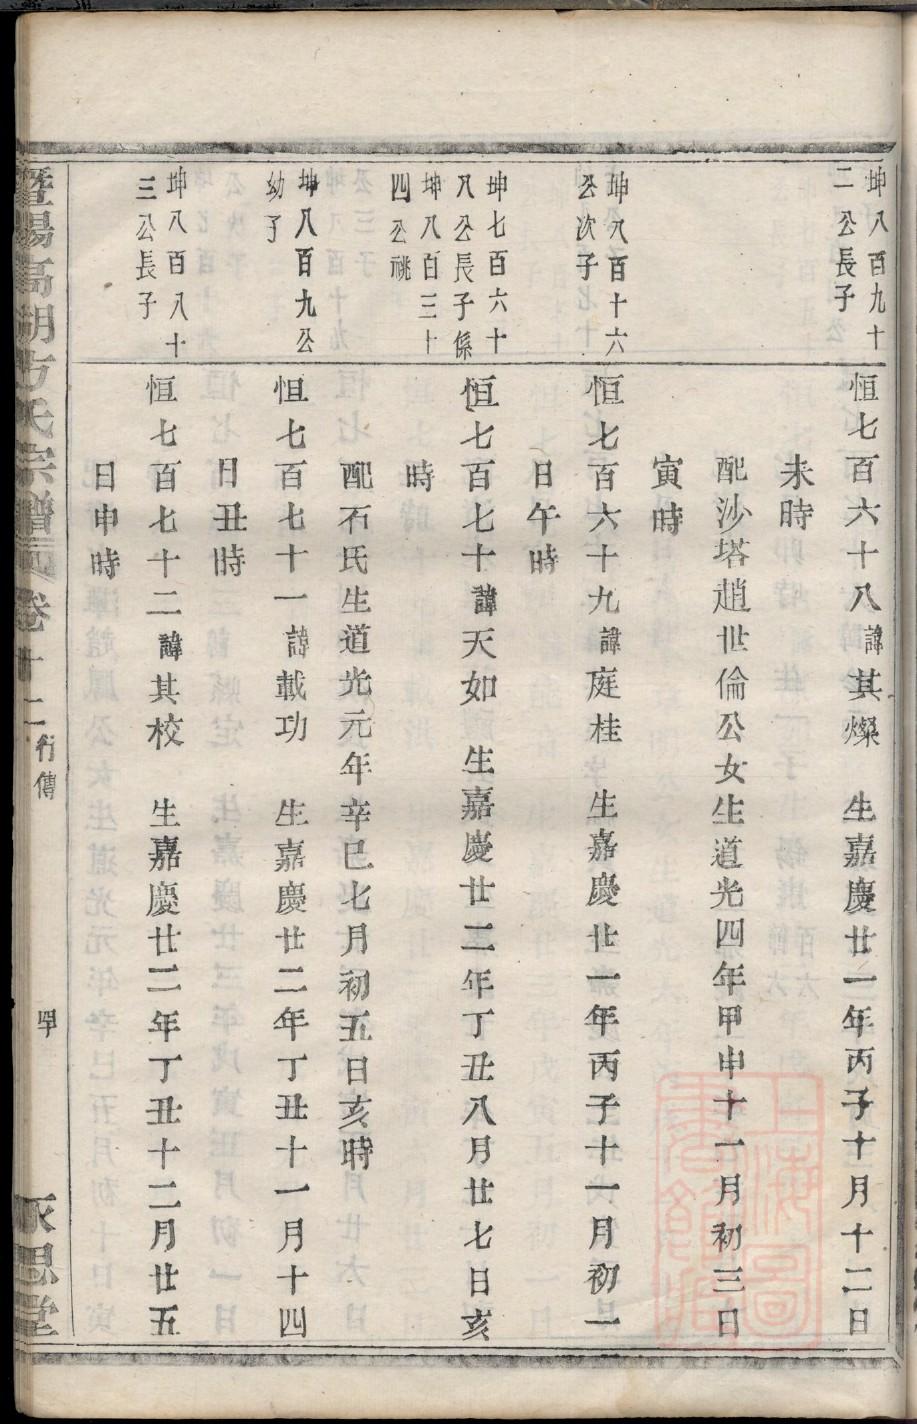 坤八百九十
二公長子
恒七百六十八諱其燦 生嘉慶廿一年丙子十月十二日
未時
配沙塔趙世倫公女生道光四年甲申十一月初三日
寅時
坤八百十六
公次子
恒七百六十九諱庭桂 生嘉慶廿一年丙子十一月初一
日午時
坤七百六十
八公長子係
坤八百三十
四公祧
恒七百七十諱天如 生嘉慶廿二年丁丑八月廿七日亥
時
配石氏生道光元年辛巳七月初五日亥時
坤八百九公
幼子
恒七百七十一諱載功 生嘉慶廿二年丁丑十一月十四
日丑時
坤八百八十
三公長子
恒七百七十二諱其校 生嘉慶廿二年丁丑十二月廿五
日申時
暨陽高湖方氏宗譜 卷十二 行傳 永思堂